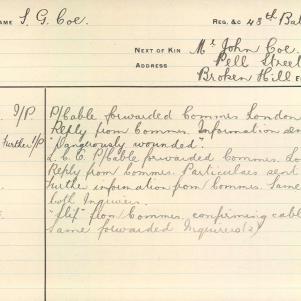 NAME S. G. Coe. REG. &C 43th Bat
NEXT OF KIN Mr. John Coe.
ADDRESS Pell Street
Broken Hill
I/P. P/Cable forwarded Commrs. London
Reply from Commrs. Information sen
Further I/P "Dangerously wounded".
L.C.C. P/Cable forwarded Commrs. Lo
Reply from Commrs. Particulars sent
Further information from Commrs. Same
both Inquirers.
"flif" from Commrs. confirming cabl
Same forwarded Inquirers (2)